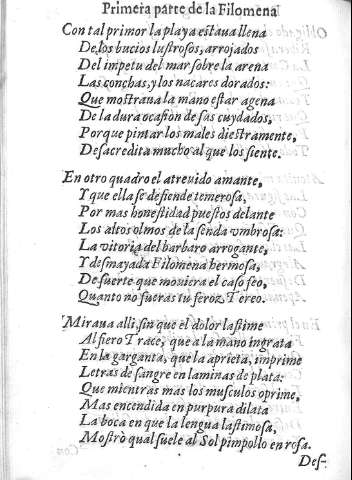 Primera parte de la Filomena
Con tal primor la playa estaua llena
De los bucios lustrosos, arrojados
Del impetu del mar sobre la arena
Las conchas, y los nacares dorados:
Que mostraua la mano estar agena
De la dura ocasion de sus cuydados,
Porque pintar los males diestramente,
Desacredita mucho al que los siente.
En otro quadro el atreuido amante,
Y que ella se defiende temerosa,
Por mas honestidad puestos delante
Los altos olmos de la senda vmbrosa:
La vitoria del barbaro arrogante,
Y desmayada Filomena hermosa,
De suerte que mouiera el caso feo,
Quanto no fueras tu feroz Tereo.
Miraua alli, sin que el dolor lastime
Al fiero Trace, que a la mano ingrata
En la garganta, que la aprieta, imprime
Letras de sangre en laminas de plata:
Que mientras mas los musculos oprime,
Mas encendida en purpura dilata
La boca en que la lengua lastimosa,
Mostrò qual suele al Sol pimpollo en rosa.
Des-